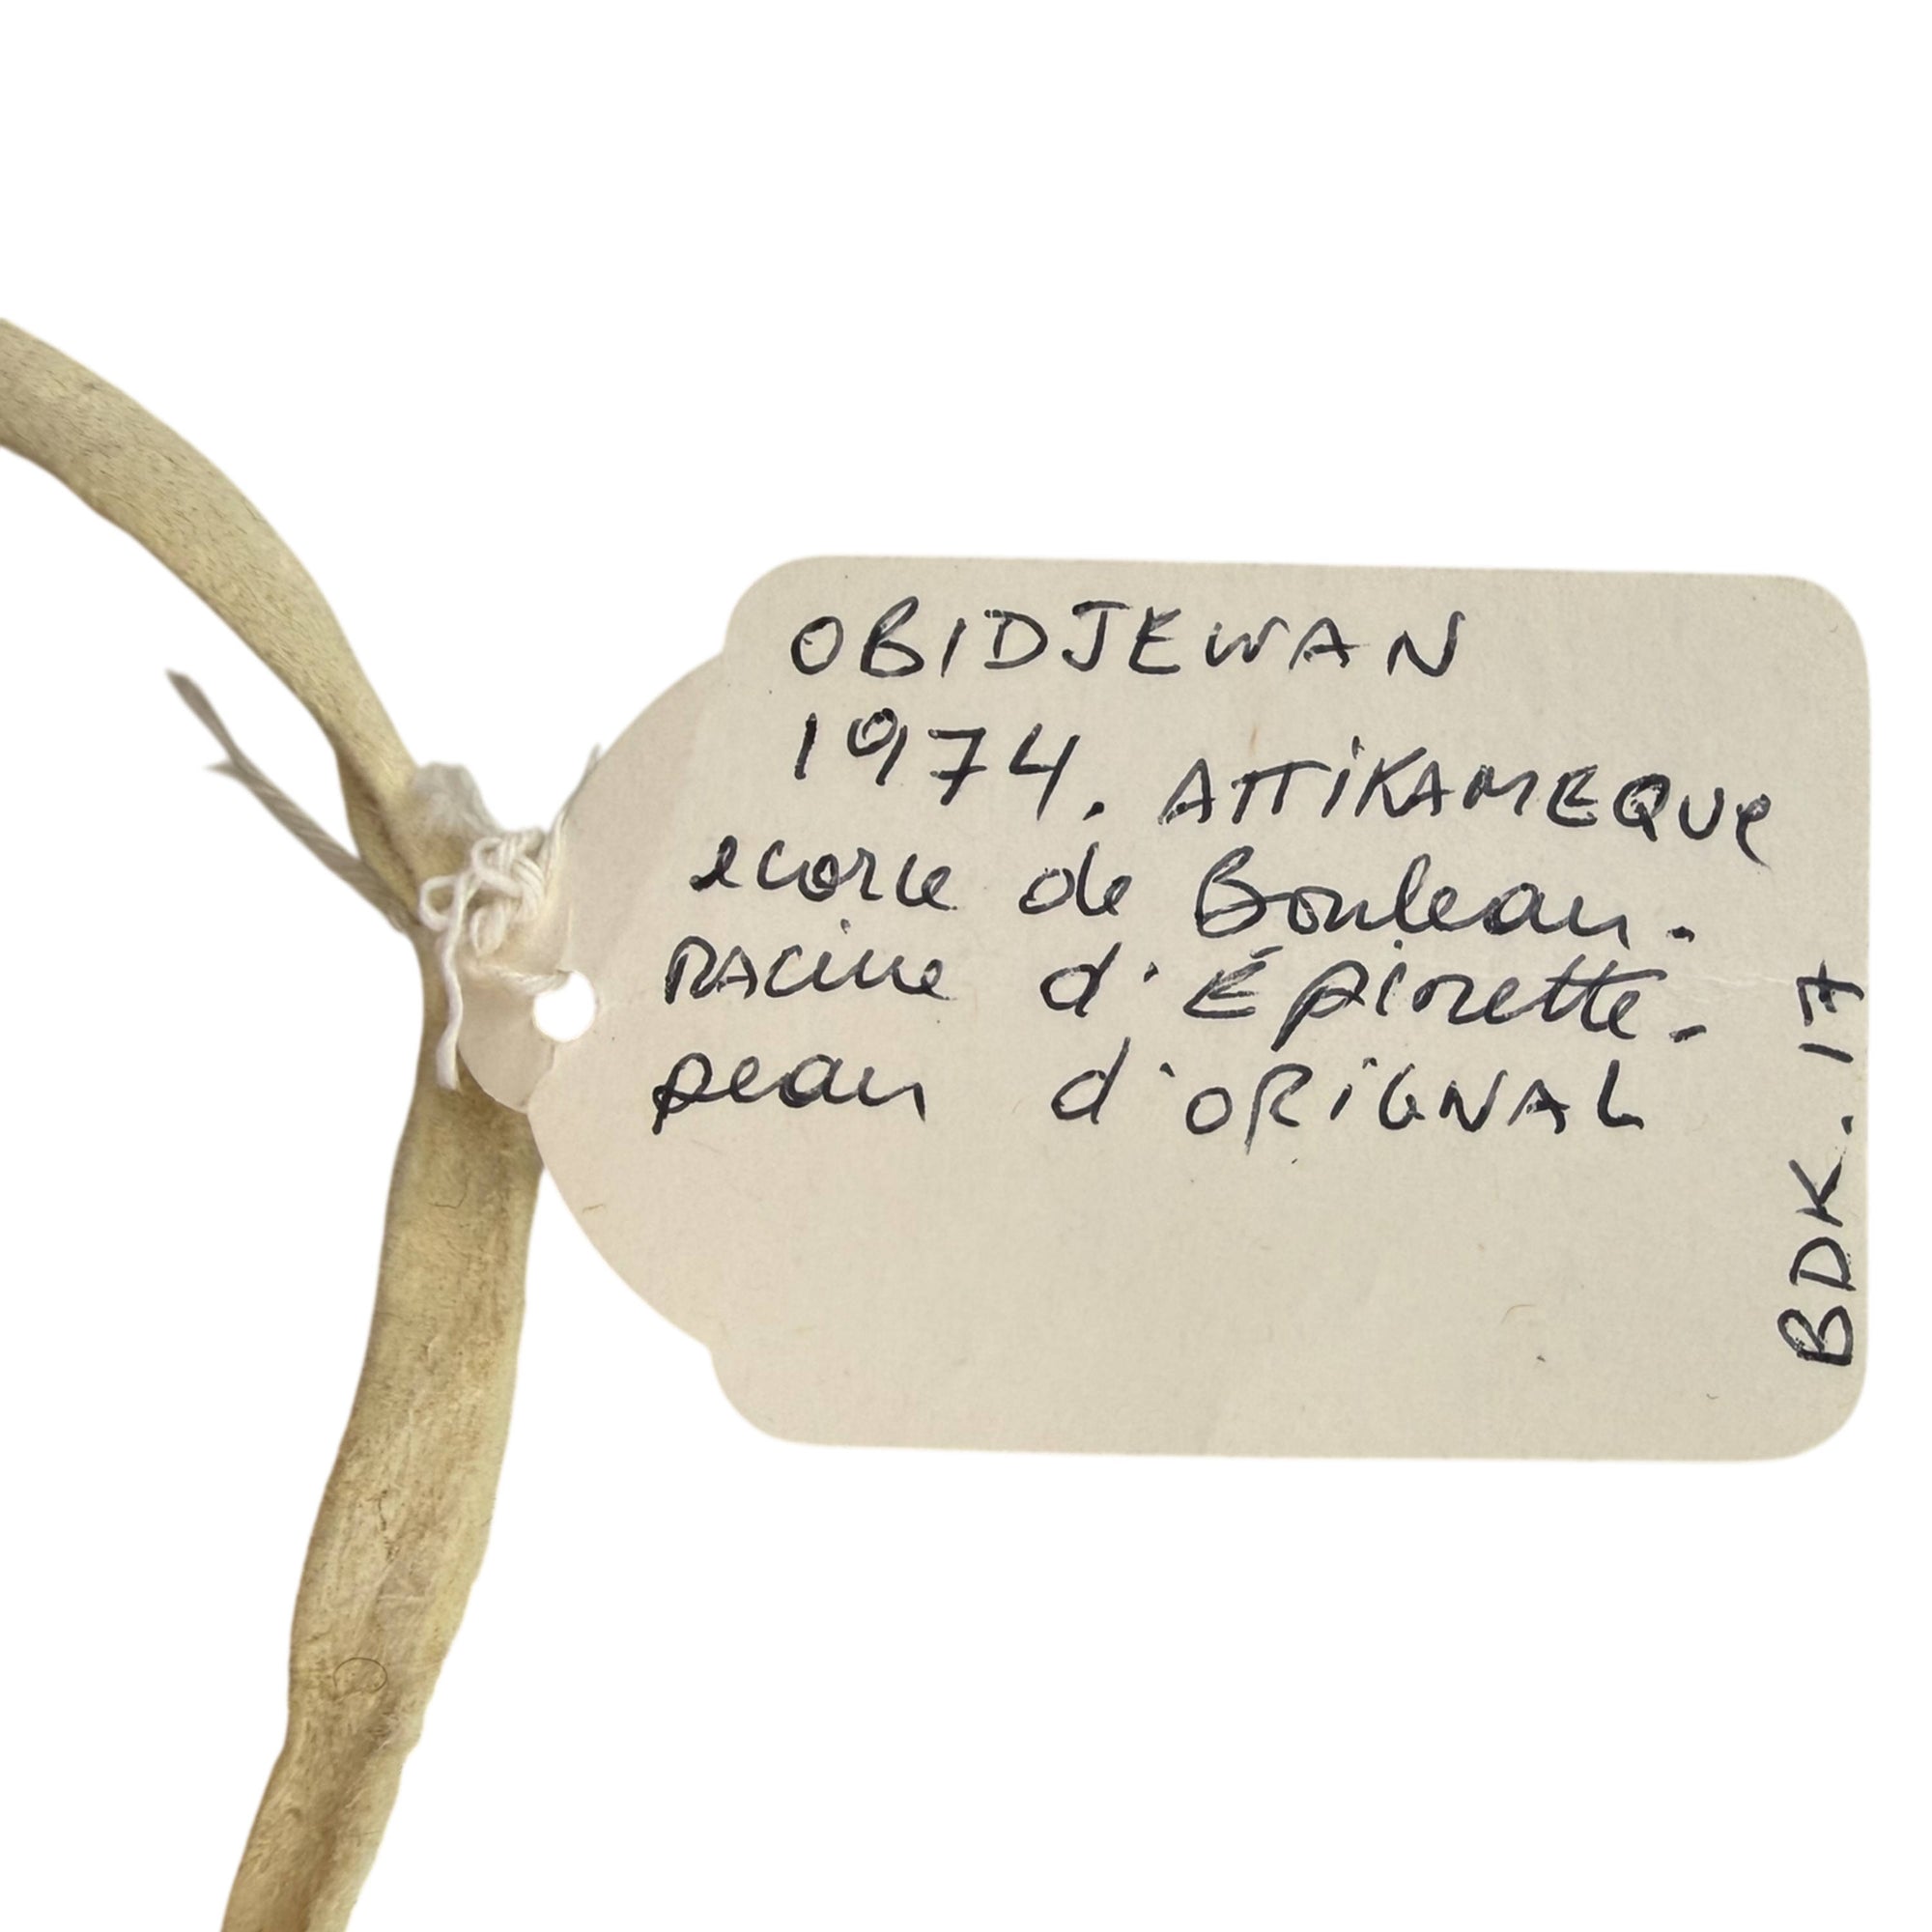 OBIDJEWAN
1974. ATTiKAMEQUe
ecorce de Bouleau.
RACine d'Épinette.
peau d'ORiGNAL
BDK.17